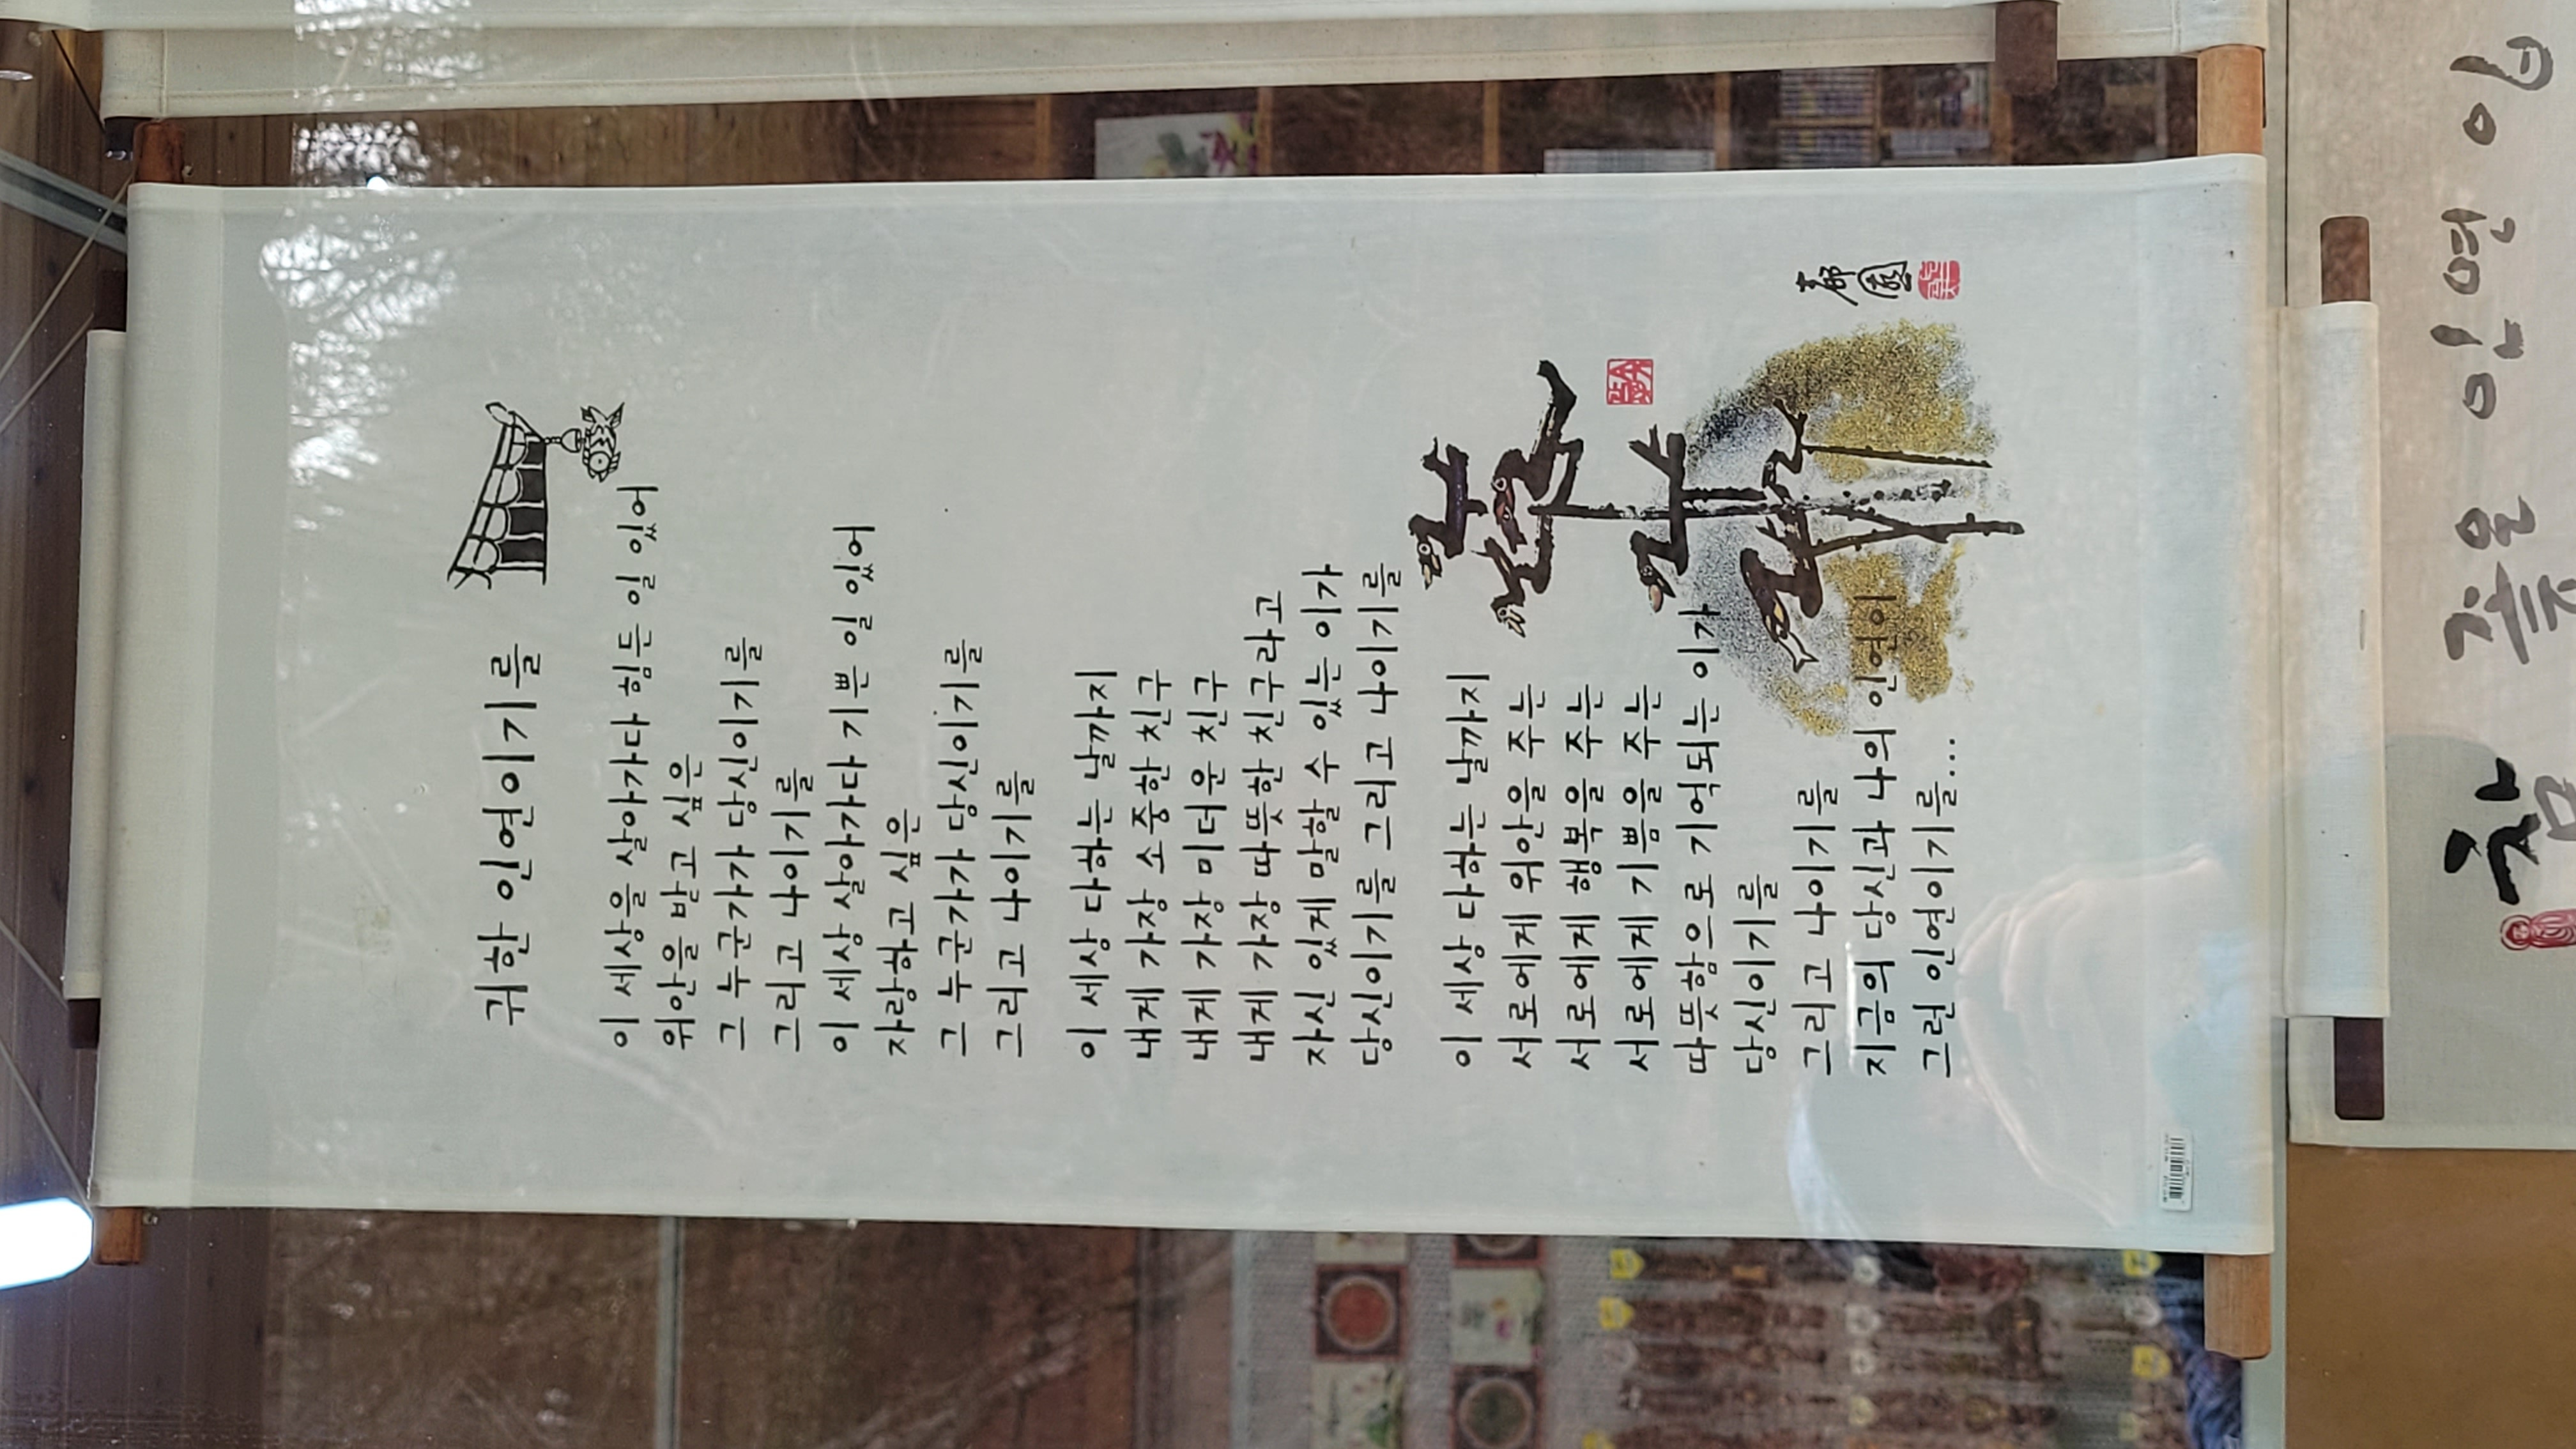 귀한 인연이기를
이 세상을 살아가다 힘든 일 있어
위안을 받고 싶은
그 누군가가 당신이기를
그리고 나이기를
이 세상 살아가다 기쁜 일 있어
자랑하고 싶은
그 누군가가 당신이기를
그리고 나이기를
이 세상 다하는 날까지
내게 가장 소중한 친구
내게 가장 미더운 친구
내게 가장 따뜻한 친구라고
자신 있게 말할 수 있는 이가
당신이기를 그리고 나이기를
이 세상 다하는 날까지
서로에게 위안을 주는
서로에게 행복을 주는
서로에게 기쁨을 주는
따뜻함으로 기억되는 이가
당신이기를
그리고 나이기를
지금의 당신과 나의 인연이
그런 인연이기를...
참 좋은 인연입